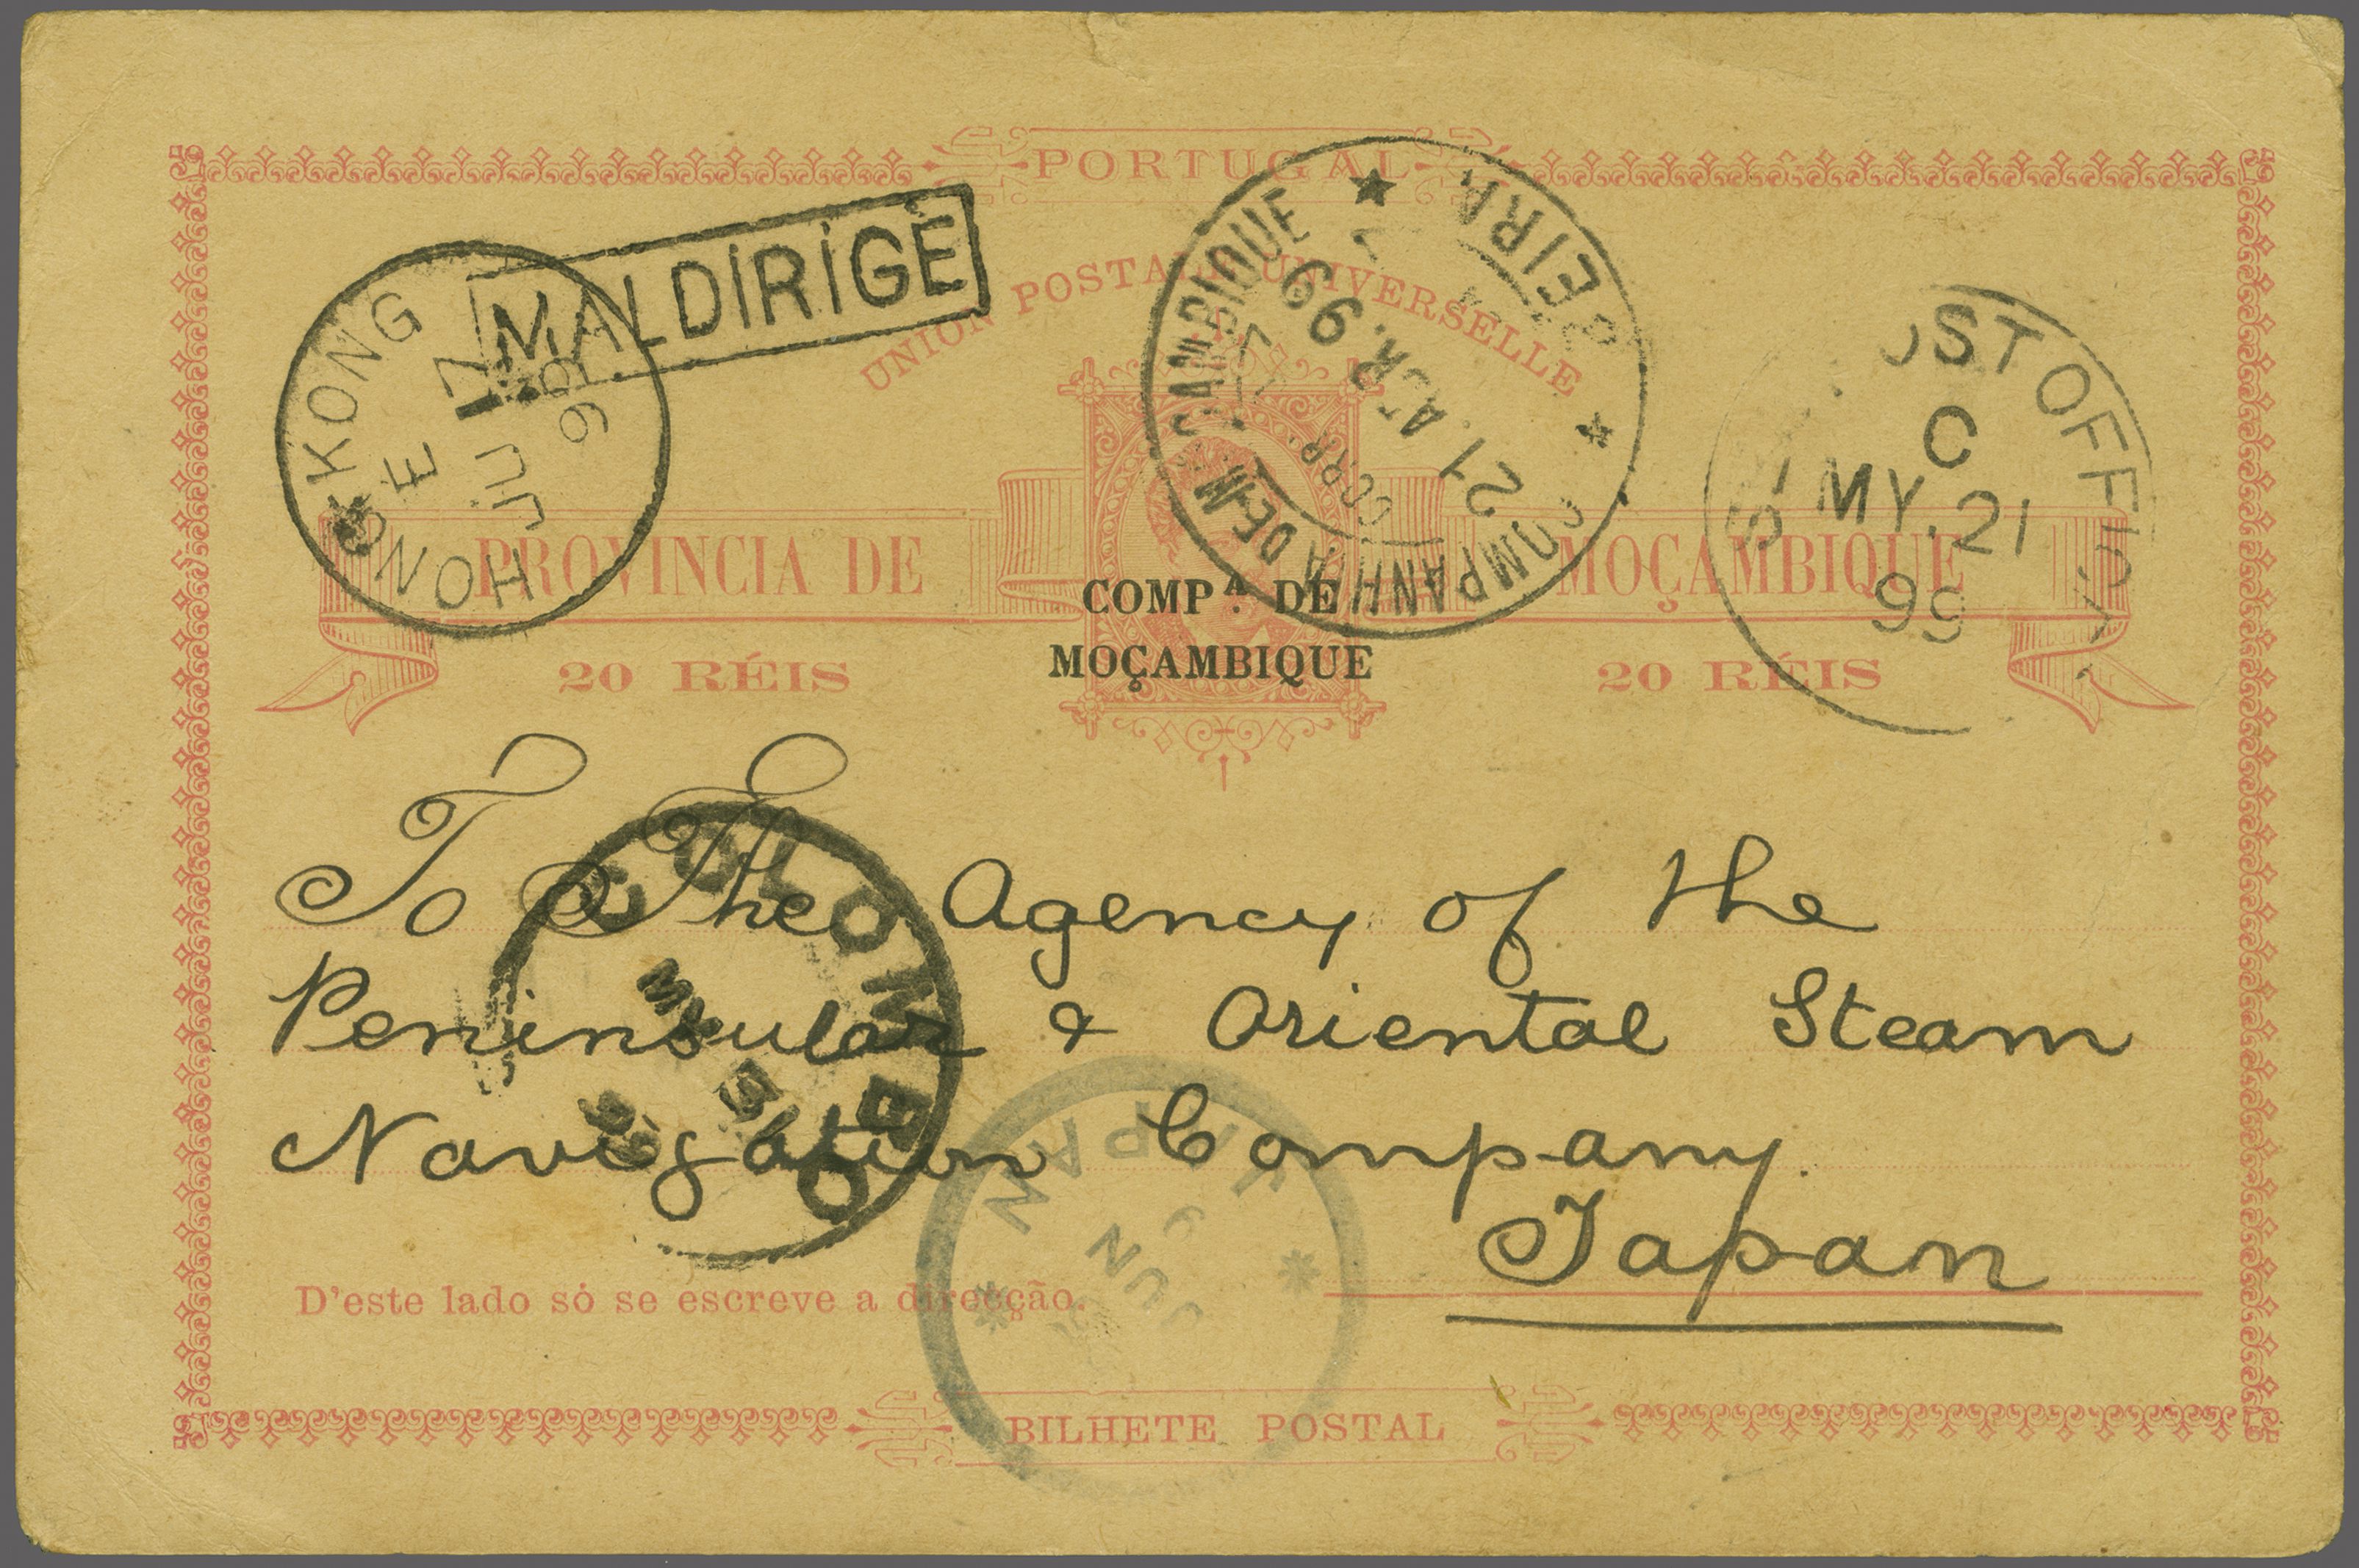 PORTUGAL
UNION POSTALE UNIVERSELLE
PROVINCIA DE MOÇAMBIQUE
20 RÉIS 20 RÉIS
COMPA. DE
MOÇAMBIQUE
MALDIRIGÉ
HONG KONG
E
17
JU
99
BEIRA
COMPANHIA DE MOÇAMBIQUE
CORR
21. ABR. 99
OST OFFICE
C
MY. 21
99
To The Agency of the
Peninsular & Oriental Steam
Navigation Company.
Japan
COLOMBO
MY
JAPAN
JUN
D'este lado só se escreve a direcção.
BILHETE POSTAL